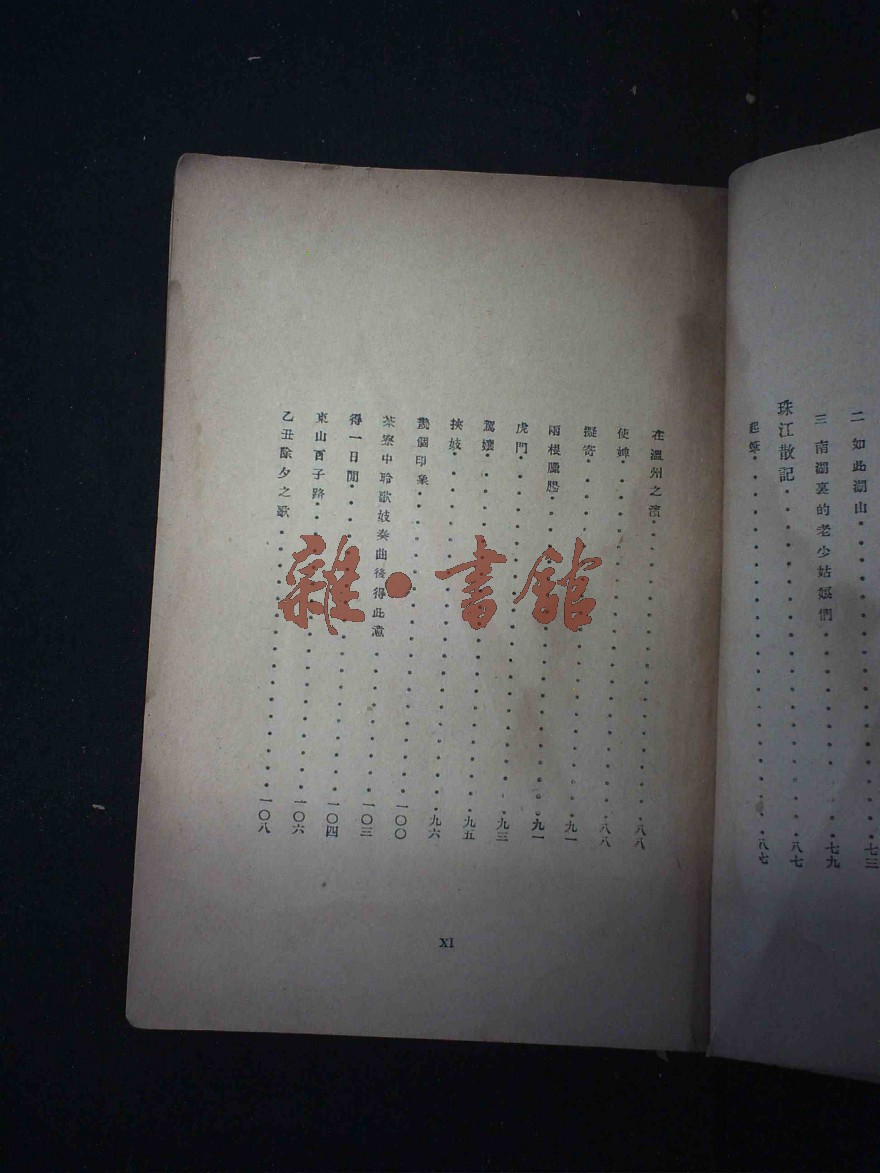 二 如此湖山・・・七三
三 南湖裏的老少姑娘們・・・七九
珠江散記・・・八七
起椗・・・八七
在溫州之濱・・・八八
使婢・・・八八
擬寄・・・九一
兩根臘腸・・・九一
虎門・・・九三
鴛孃・・・九五
挾妓・・・九六
幾個印象・・・一〇〇
茶寮中聆歌妓奏曲後得此意・・・一〇三
得一日閒・・・一〇四
東山百子路・・・一〇六
乙丑除夕之歌・・・一〇八
XI
雜・書館